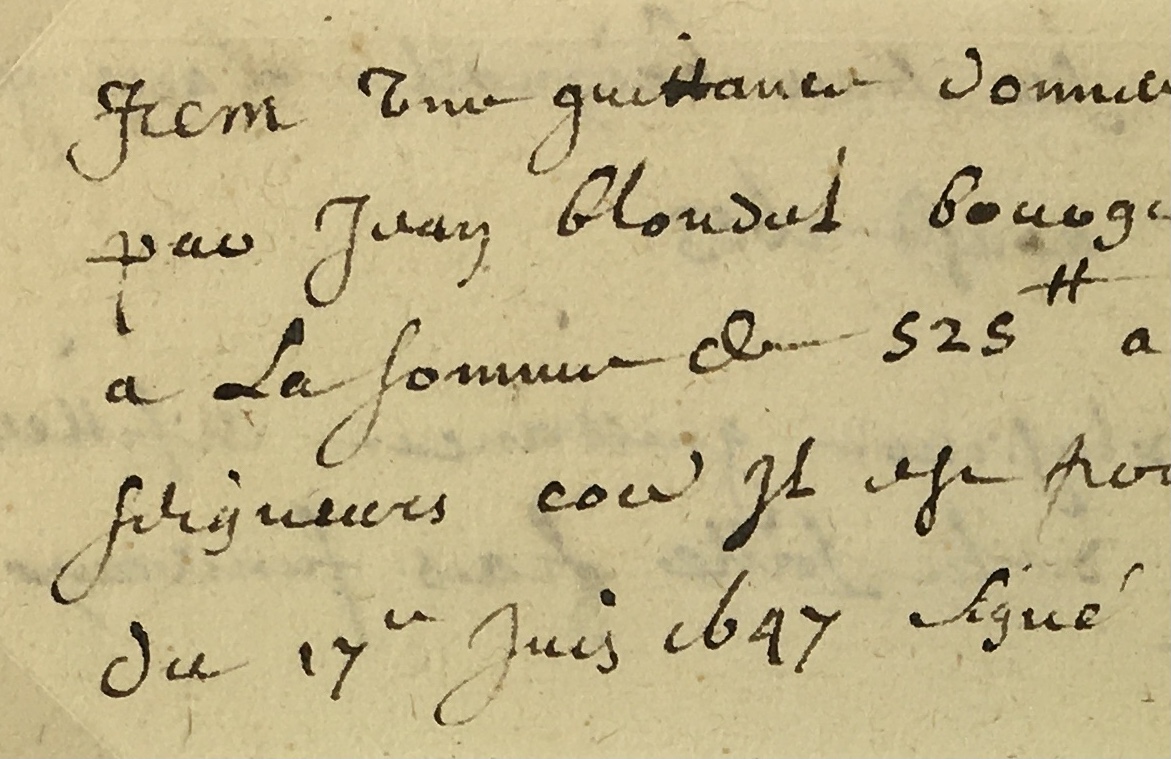 Item Une quittance donnee
par Jean blondel bourg
a La somme de 525 ₶ a
seigneurs co[mm]e Jl est por
du 17e Juin 1647 signé